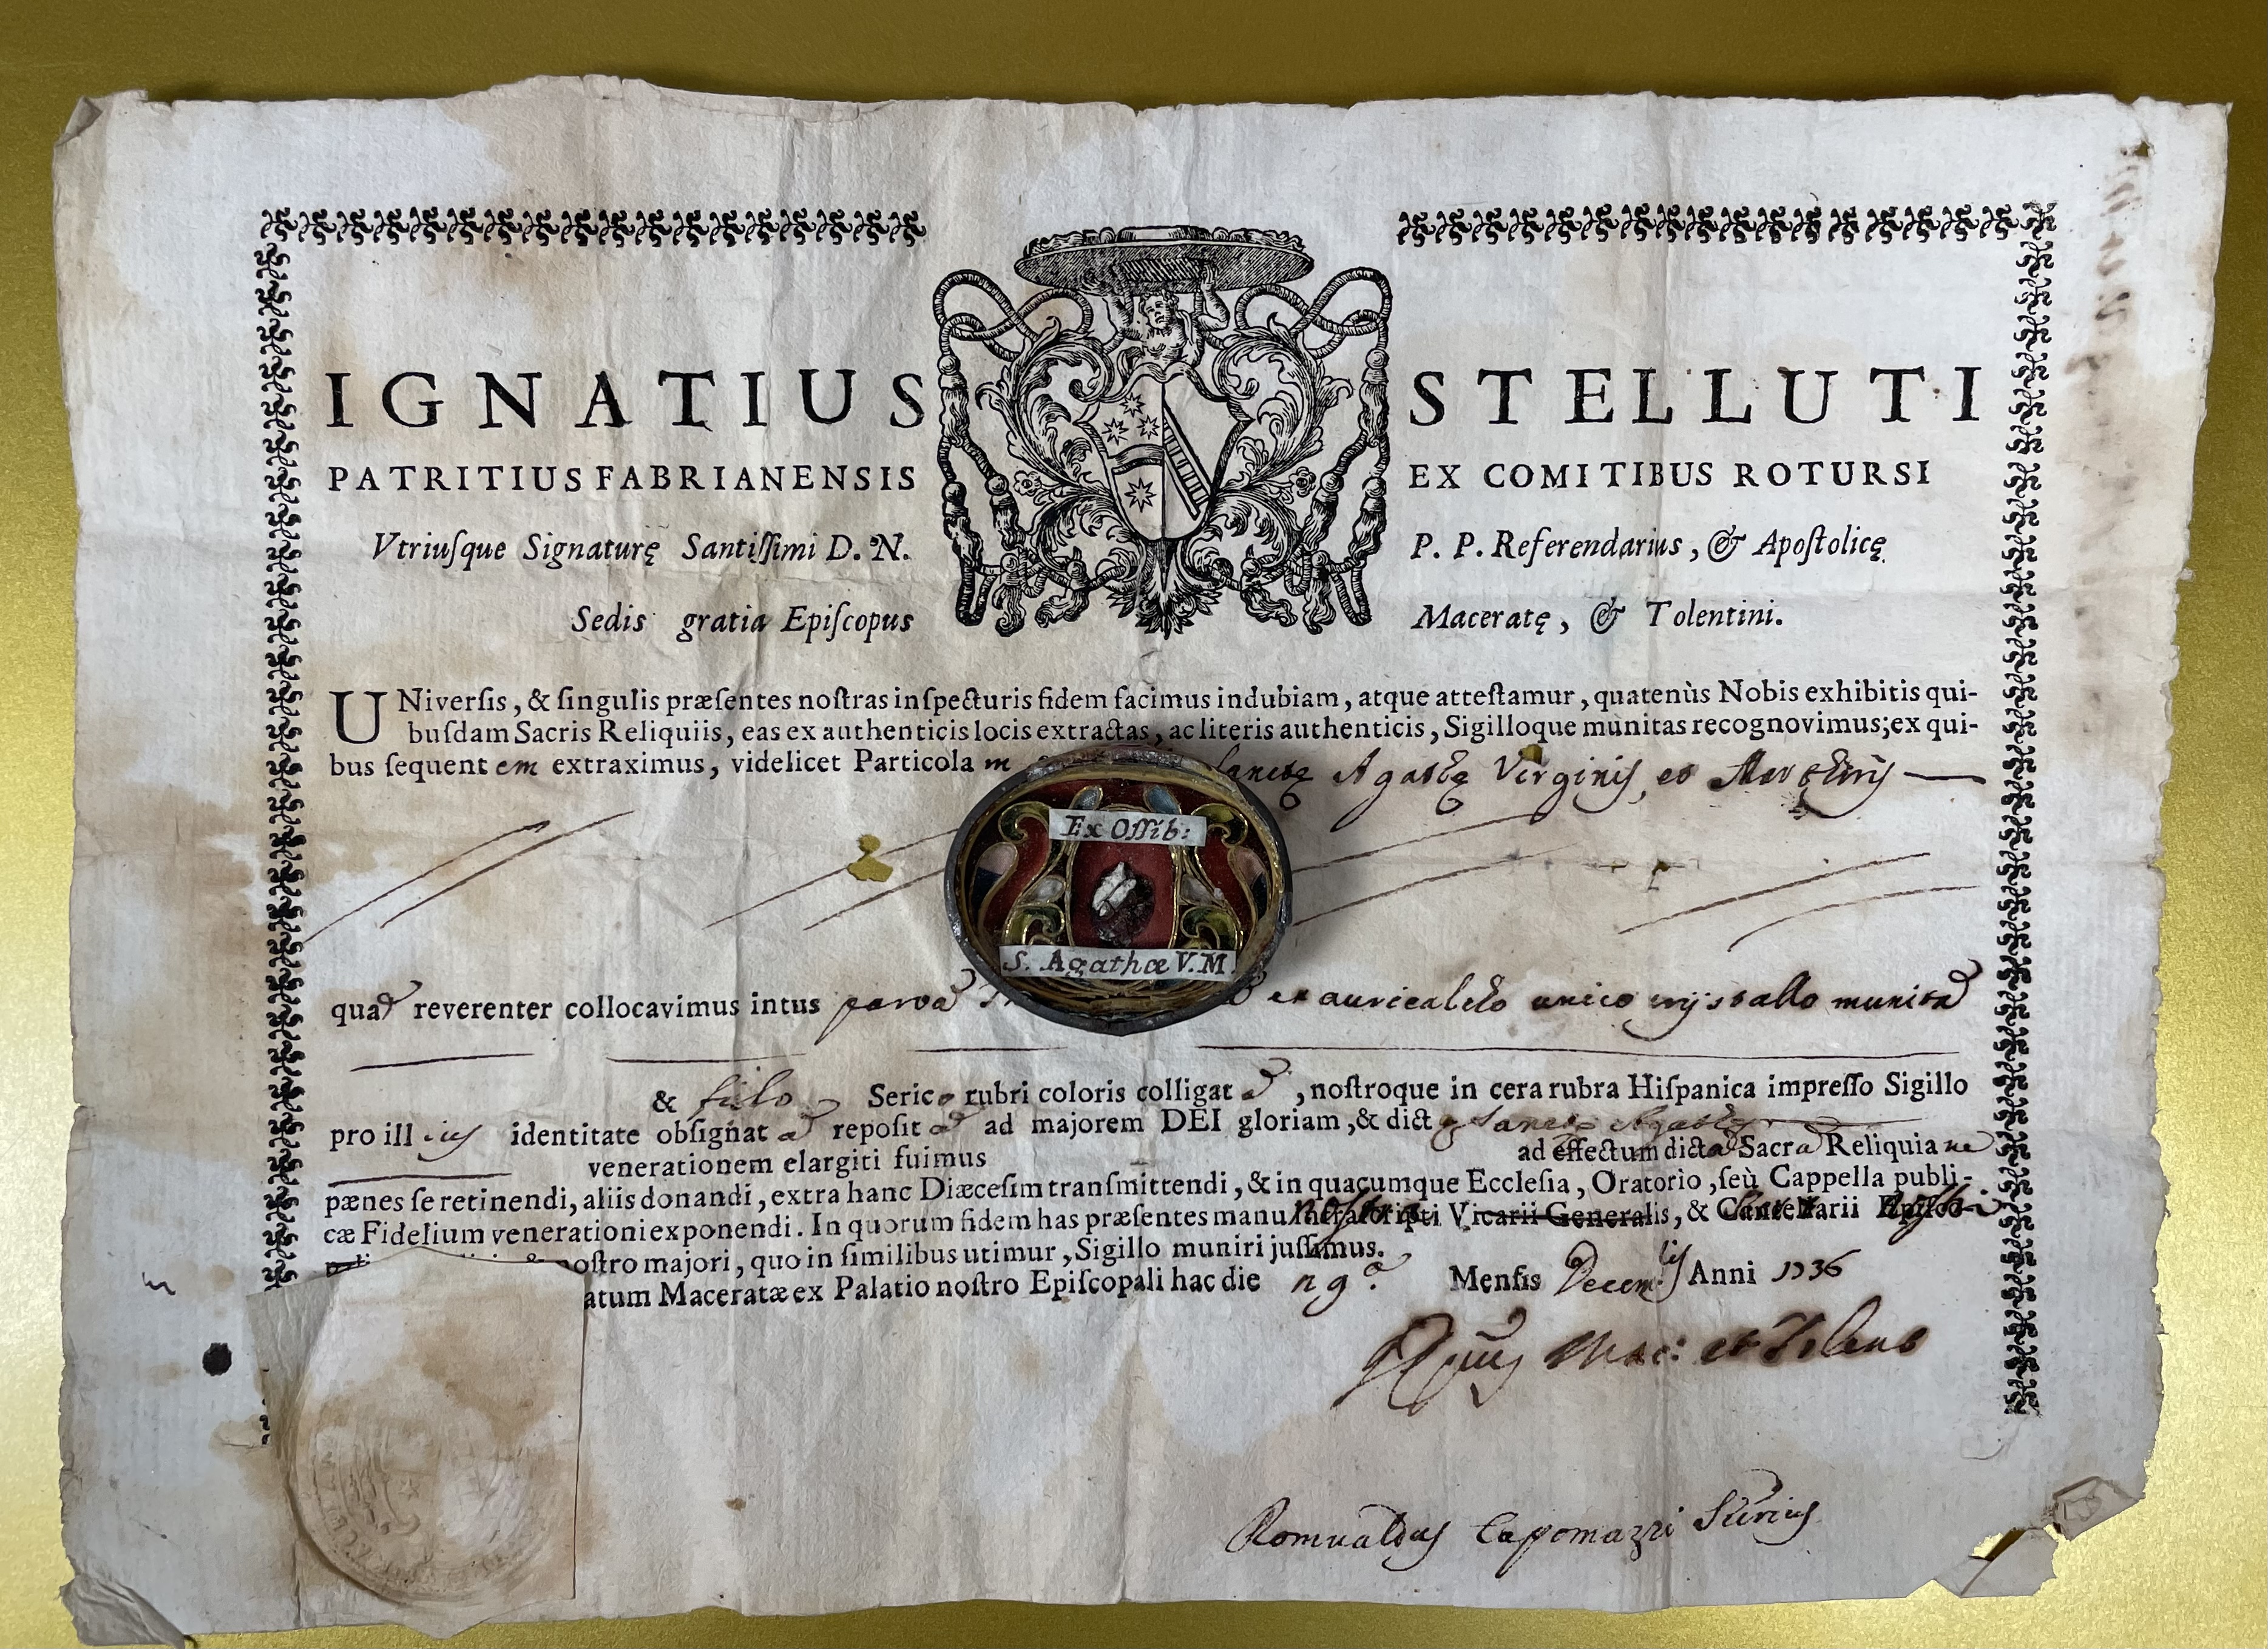 IGNATIUS STELLUTI
PATRITIUS FABRIANENSIS EX COMITIBUS ROTURSI
Vtriuſque Signaturę Santiſſimi D. N. P. P. Referendarius, & Apoſtolicę
Sedis gratia Epiſcopus Maceratę, & Tolentini.
UNiverſis, & ſingulis præſentes noſtras inſpecturis fidem facimus indubiam, atque atteſtamur, quatenùs Nobis exhibitis qui-
buſdam Sacris Reliquiis, eas ex authenticis locis extractas, ac literis authenticis, Sigilloque munitas recognovimus; ex qui-
bus ſequentem extraximus, videlicet Particolam Sanctę Agathę Virginis, et Martyris
Ex Oſſib:
S. Agathæ V. M.
quã reverenter collocavimus intus parvã ex auricalcho unico crystallo munitã
& filo Serico rubri coloris colligatã, noſtroque in cera rubra Hiſpanica impreſſo Sigillo
pro illius identitate obſignatã repoſitã ad majorem DEI gloriam, & dictę Sanctę Agathę
venerationem elargiti fuimus ad effectum dictã Sacrã Reliquiam
pænes ſe retinendi, aliis donandi, extra hanc Diæceſim tranſmittendi, & in quacumque Eccleſia, Oratorio, ſeù Cappella publi-
cæ Fidelium venerationi exponendi. In quorum fidem has præſentes manu noſtra Vicarii Generalis, &
noſtro majori, quo in ſimilibus utimur, Sigillo muniri juſſimus.
atum Maceratæ ex Palatio noſtro Epiſcopali hac die Menſis Decembris Anni 1736
Mac: et Tolent
Romualdus Capomazzi